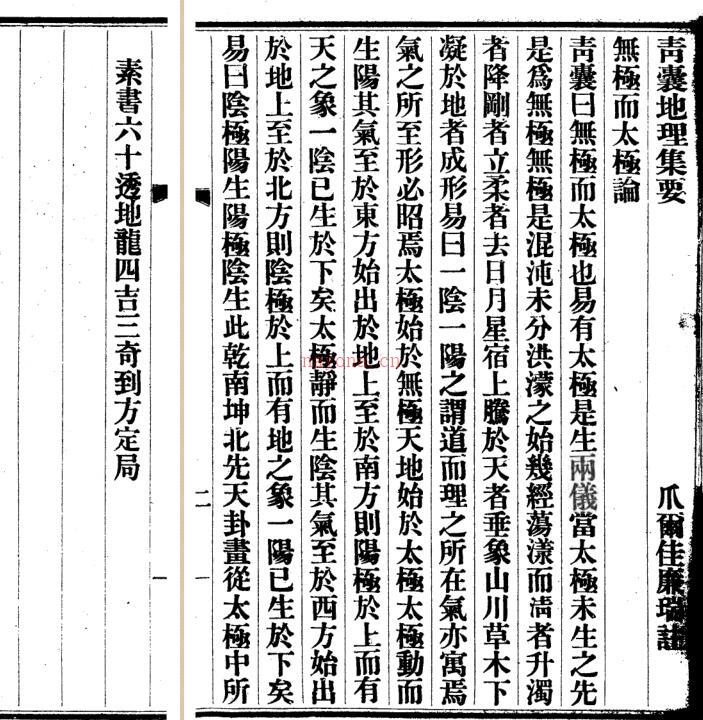 青囊地理集要
爪爾佳廉瑞註
無極而太極論
青囊曰無極而太極也易有太極是生兩儀當太極未生之先
是爲無極無極是混沌未分洪濛之始幾經蕩漾而淸者升濁
者降剛者立柔者去日月星宿上騰於天者垂象山川草木下
凝於地者成形易曰一陰一陽之謂道而理之所在氣亦寓焉
氣之所至形必昭焉太極始於無極天地始於太極太極動而
生陽其氣至於東方始出於地上至於南方則陽極於上而有
天之象一陰已生於下矣太極靜而生陰其氣至於西方始出
於地上至於北方則陰極於上而有地之象一陽已生於下矣
易曰陰極陽生陽極陰生此乾南坤北先天卦畫從太極中所
二
一
素書六十透地龍四吉三奇到方定局
一